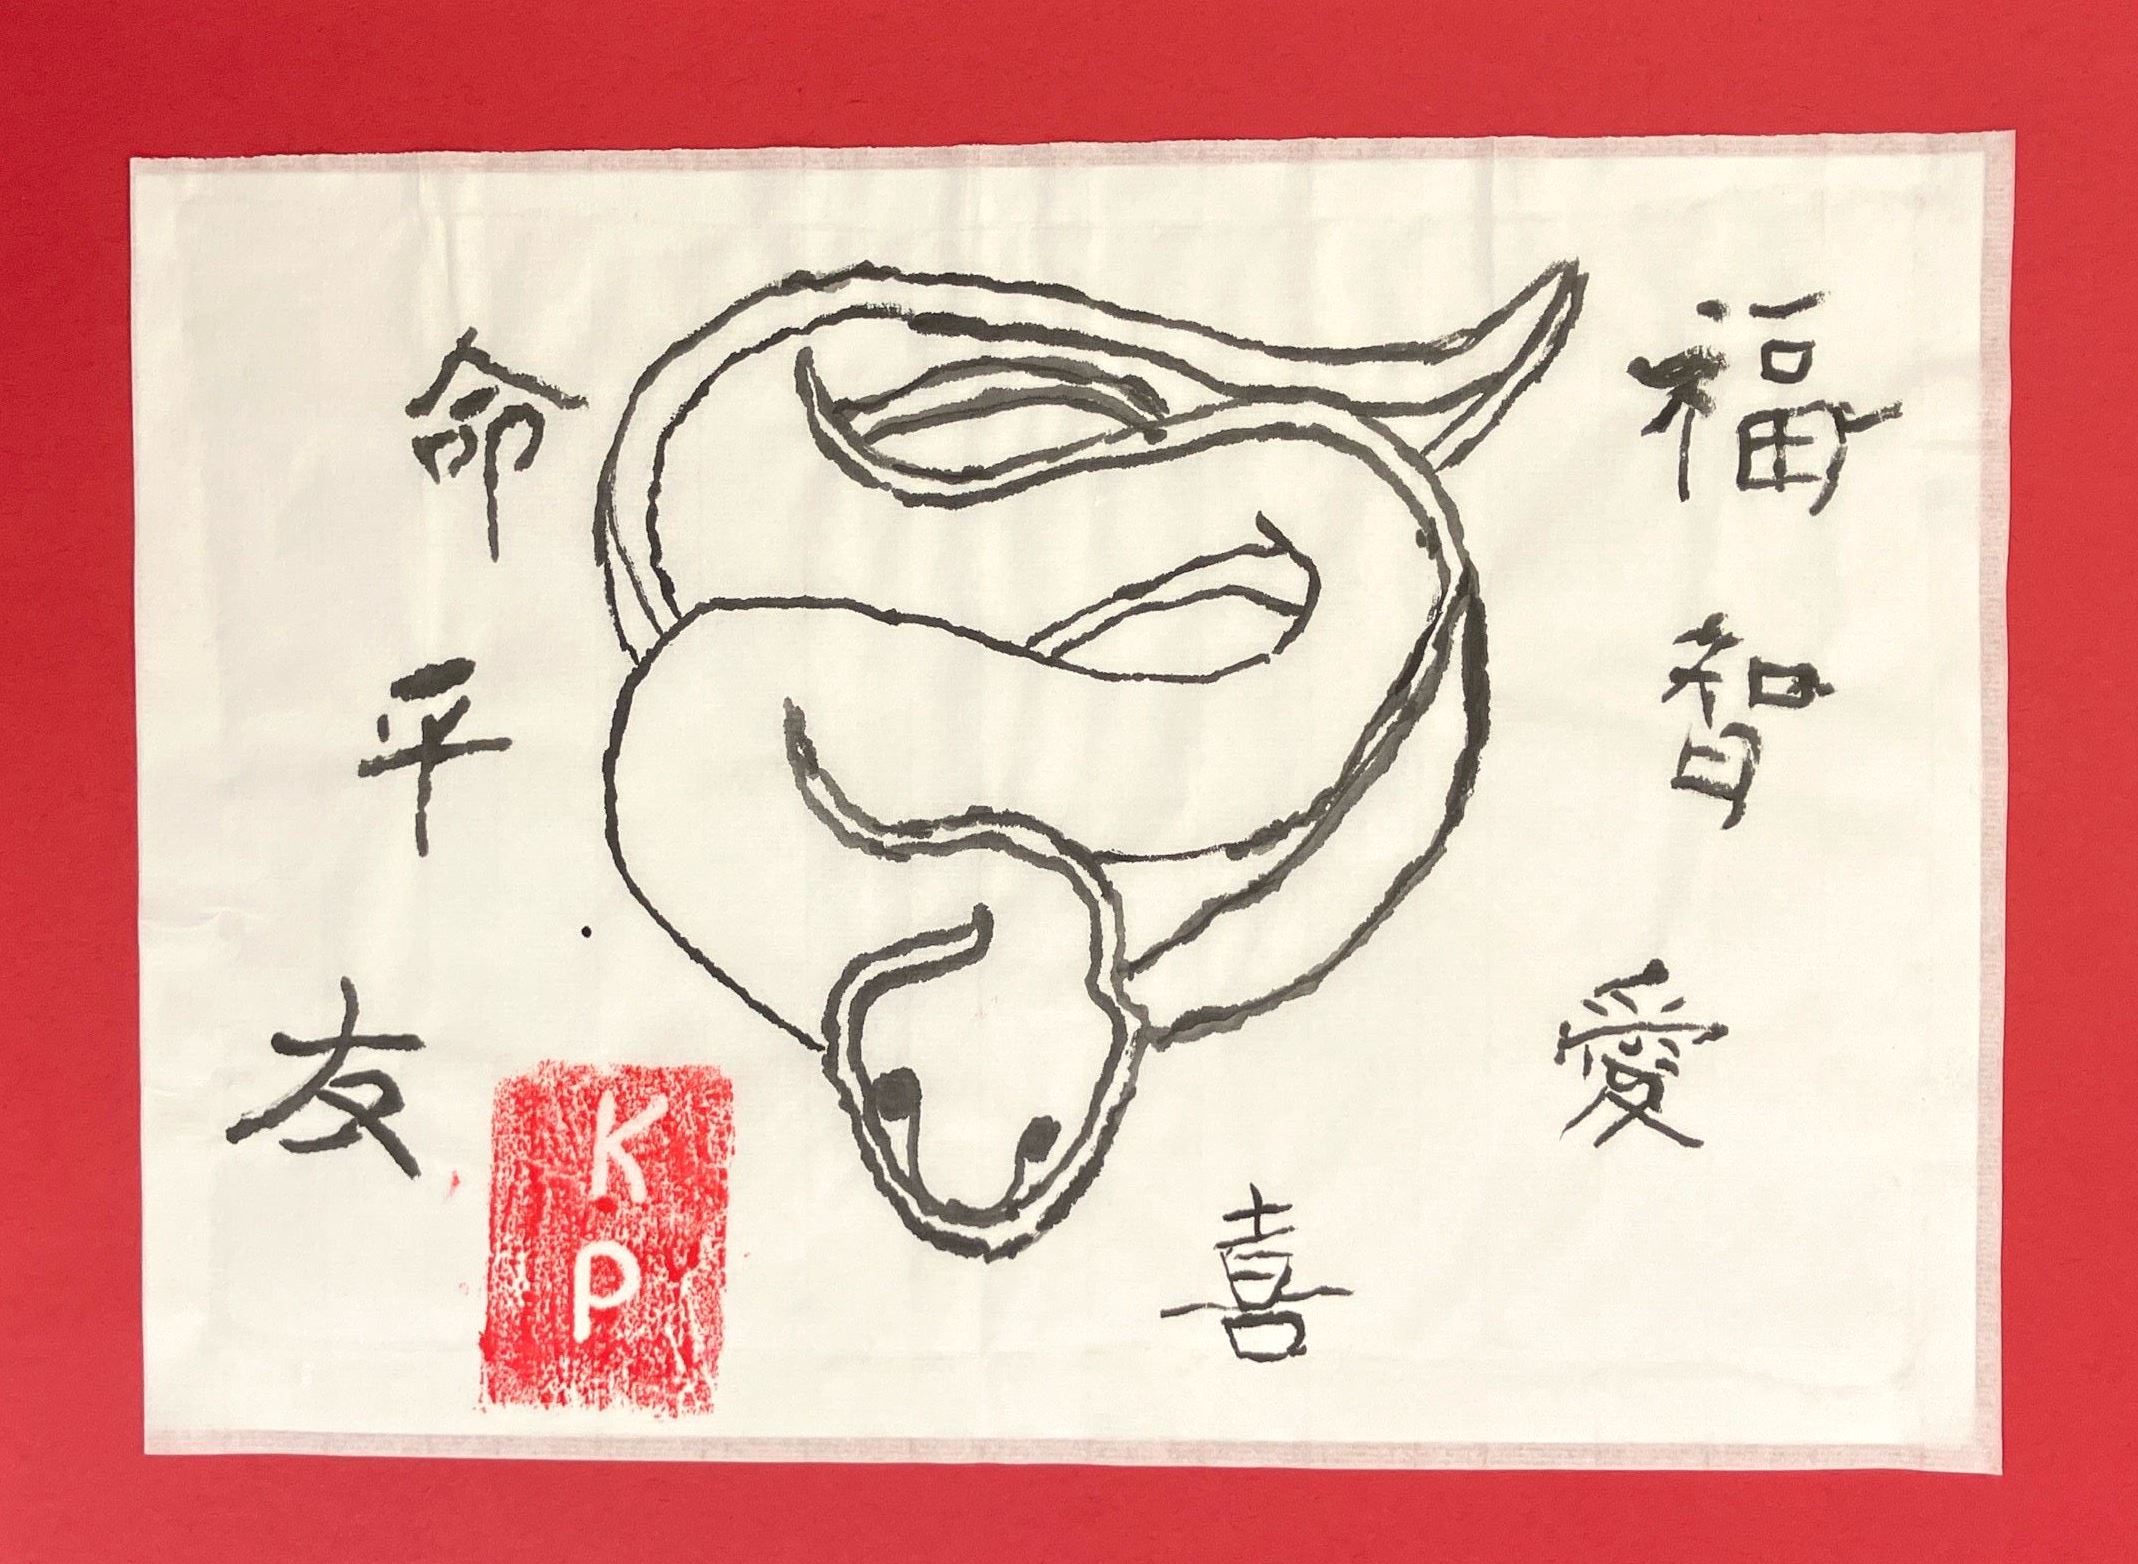 命
平
友
福
智
愛
喜
K
P